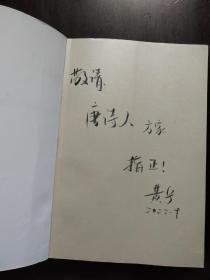 敬请
唐诗人 方家
指正！
黄华
2022.9